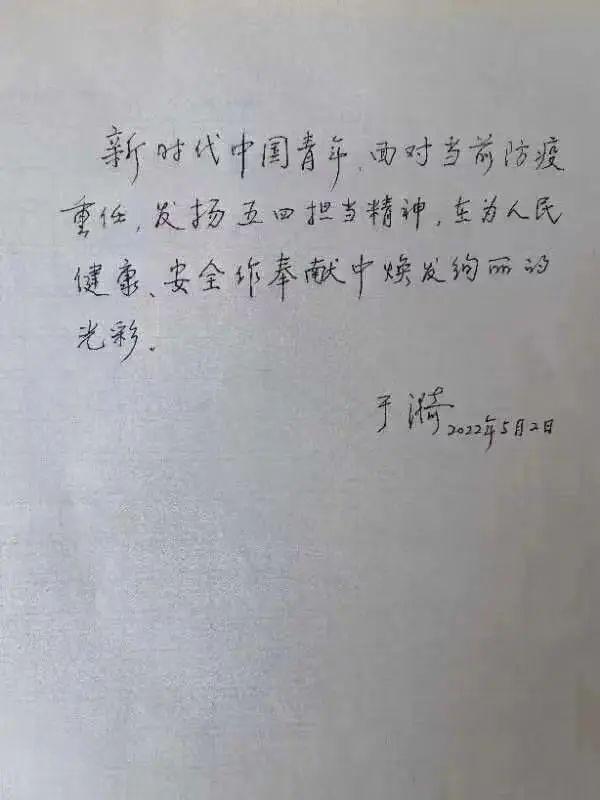 新时代中国青年、面对当前防疫
重任,发扬五四担当精神,在为人民
健康、安全作奉献中焕发绚丽的
光彩.
于漪
2022年5月2日